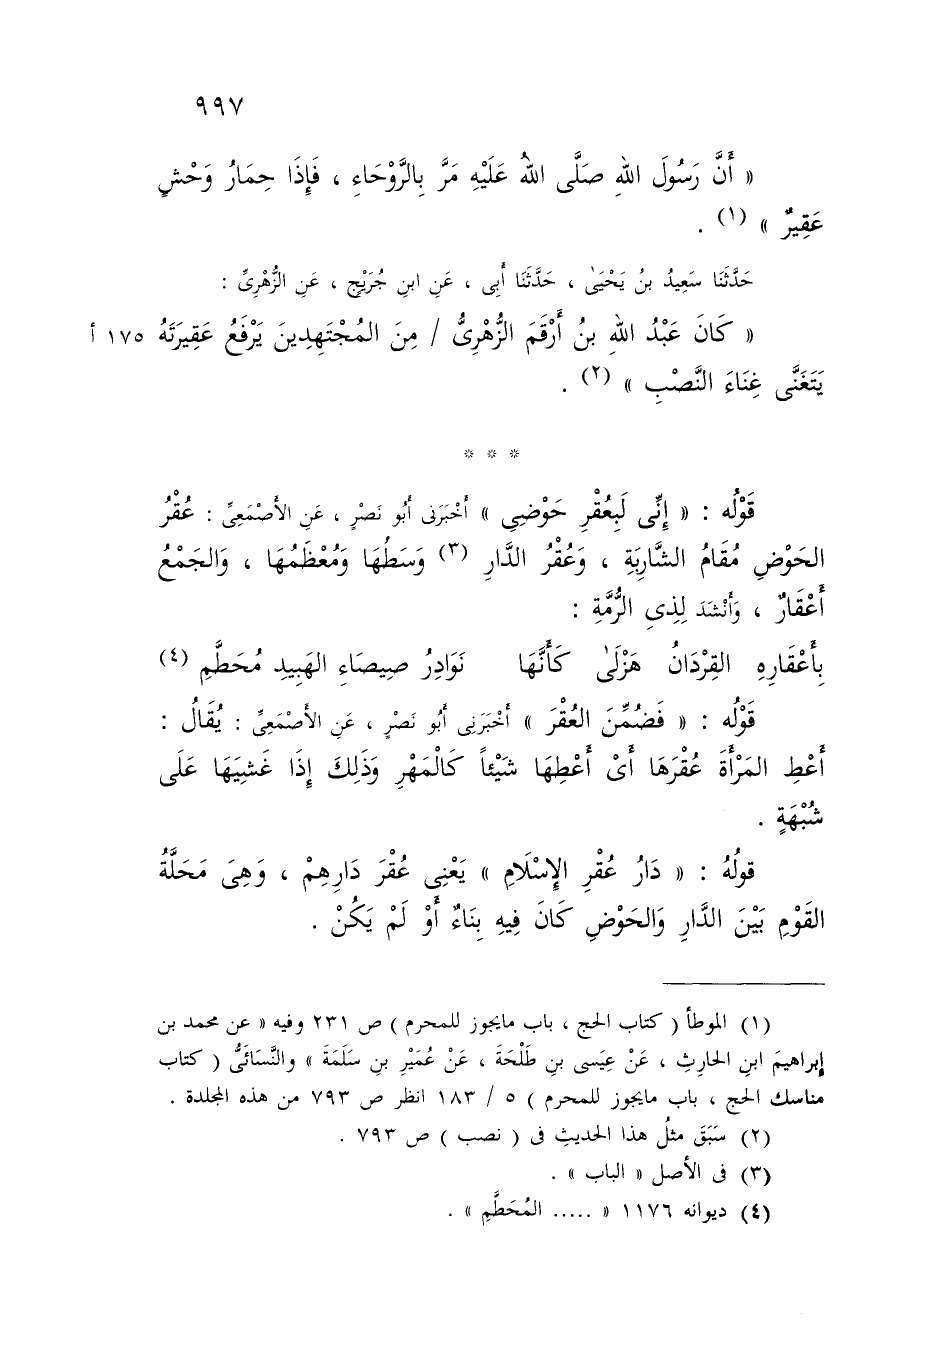 ٩٩٧
« أَنَّ رَسُولَ اللهِ صَلَّى اللهُ عَلَيْهِ مَرَّ بِالرَّوْحَاءِ ، فَإِذَا حِمَارُ وَحْشٍ
عَقِيرٌ » (١) .
حَدَّثَنَا سَعِيدُ بنُ يَحْيَىٰ ، حَدَّثَنَا أَبِى ، عَنِ ابنِ جُرَيْجٍ ، عَنِ الزُّهْرِىِّ :
« كَانَ عَبْدُ اللهِ بنُ أَرْقَمَ الزُّهْرِىُّ / مِنَ المُجْتَهِدِينَ يَرْفَعُ عَقِيرَتَهُ ١٧٥ أ
يَتَغَنَّى غِنَاءَ النَّصْبِ » (٢) .
* * *
قَوْلُه : « إِنِّى لَبِعُقْرِ حَوْضِي » أَخْبَرَنى أَبُو نَصْرٍ ، عَنِ الأَصْمَعِىِّ : عُقْرُ
الحَوْضِ مُقَامُ الشَّارِبَةِ ، وَعُقْرُ الدَّارِ (٣) وَسَطُهَا وَمُعْظَمُهَا ، وَالجَمْعُ
أَعْقَارٌ ، وَأَنْشَدَ لِذِى الرُّمَّةِ :
بِأَعْقَارِهِ القِرْدَانُ هَزْلَىٰ كَأَنَّهَا نَوَادِرُ صِيصَاءِ الهَبِيدِ مُحَطَّمِ (٤)
قَوْلُه : « فَضُمِّنَ العُقْرَ » أَخْبَرَنِى أَبُو نَصْرٍ ، عَنِ الأَصْمَعِىِّ : يُقَالُ :
أَعْطِ المَرْأَةَ عُقْرَهَا أَىْ أَعْطِهَا شَيْئاً كَالْمَهْرِ وَذَلِكَ إِذَا غَشِيَهَا عَلَى
شُبْهَةٍ .
قولُهُ : « دَارُ عُقْرِ الإِسْلَامِ » يَعْنِى عُقْرَ دَارِهِمْ ، وَهِىَ مَحَلَّةُ
القَوْمِ بَيْنَ الدَّارِ وَالحَوْضِ كَانَ فِيهِ بِنَاءٌ أَوْ لَمْ يَكُنْ .
(١) الموطأ ( كتاب الحج ، باب مايجوز للمحرم ) ص ٢٣١ وفيه « عن محمد بن
إبراهيمَ ابنِ الحارِثِ ، عَنْ عِيَسى بنِ طَلْحَةَ ، عَنْ عُمَيْرِ بنِ سَلَمَةَ » والنَّسَائَىُّ ( كتاب
مناسك الحج ، باب مايجوز للمحرم ) ٥ / ١٨٣ انظر ص ٧٩٣ من هذه المجلدة .
(٢) سَبَقَ مثلُ هذا الحديثِ فى ( نصب ) ص ٧٩٣ .
(٣) فى الأصل « الباب » .
(٤) ديوانه ١١٧٦ « ..... المُحَطَّمِ » .